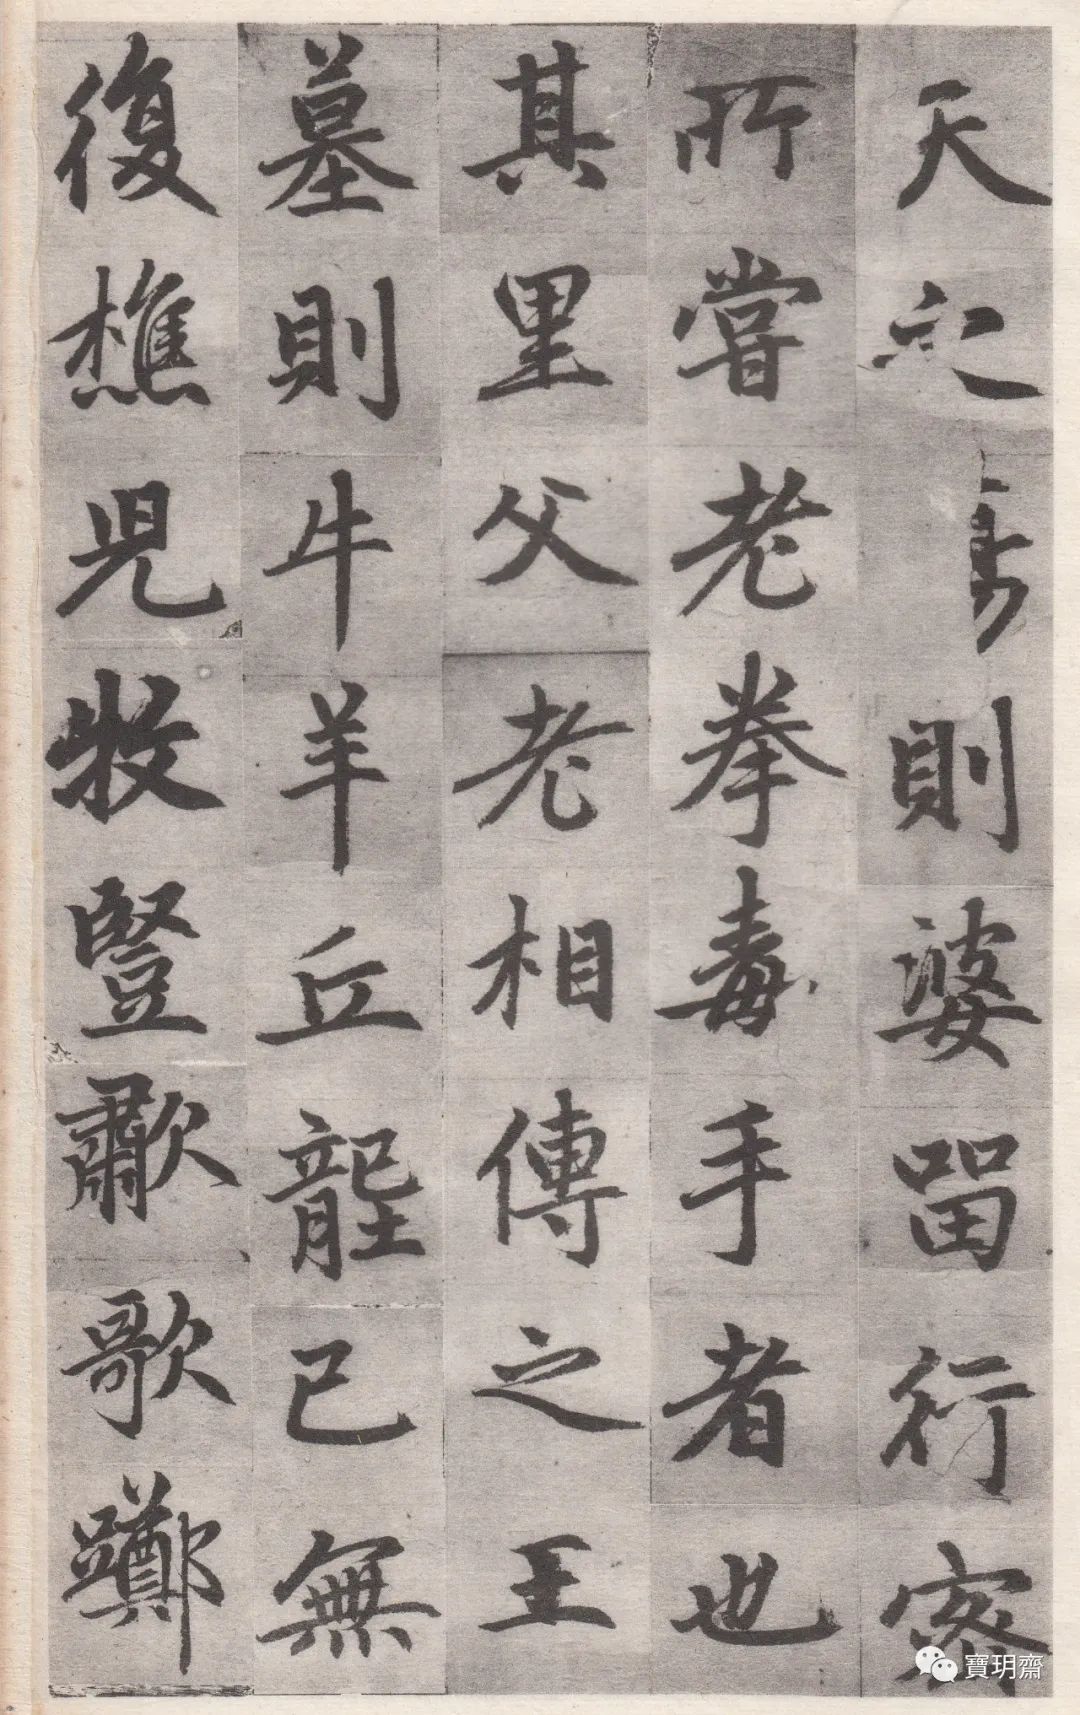 天之則婆留行密
所嘗老拳毒手者也
其里父老相傳之王
墓則牛羊丘壟已無
復樵兒牧豎歗歌躑
寶玥齋